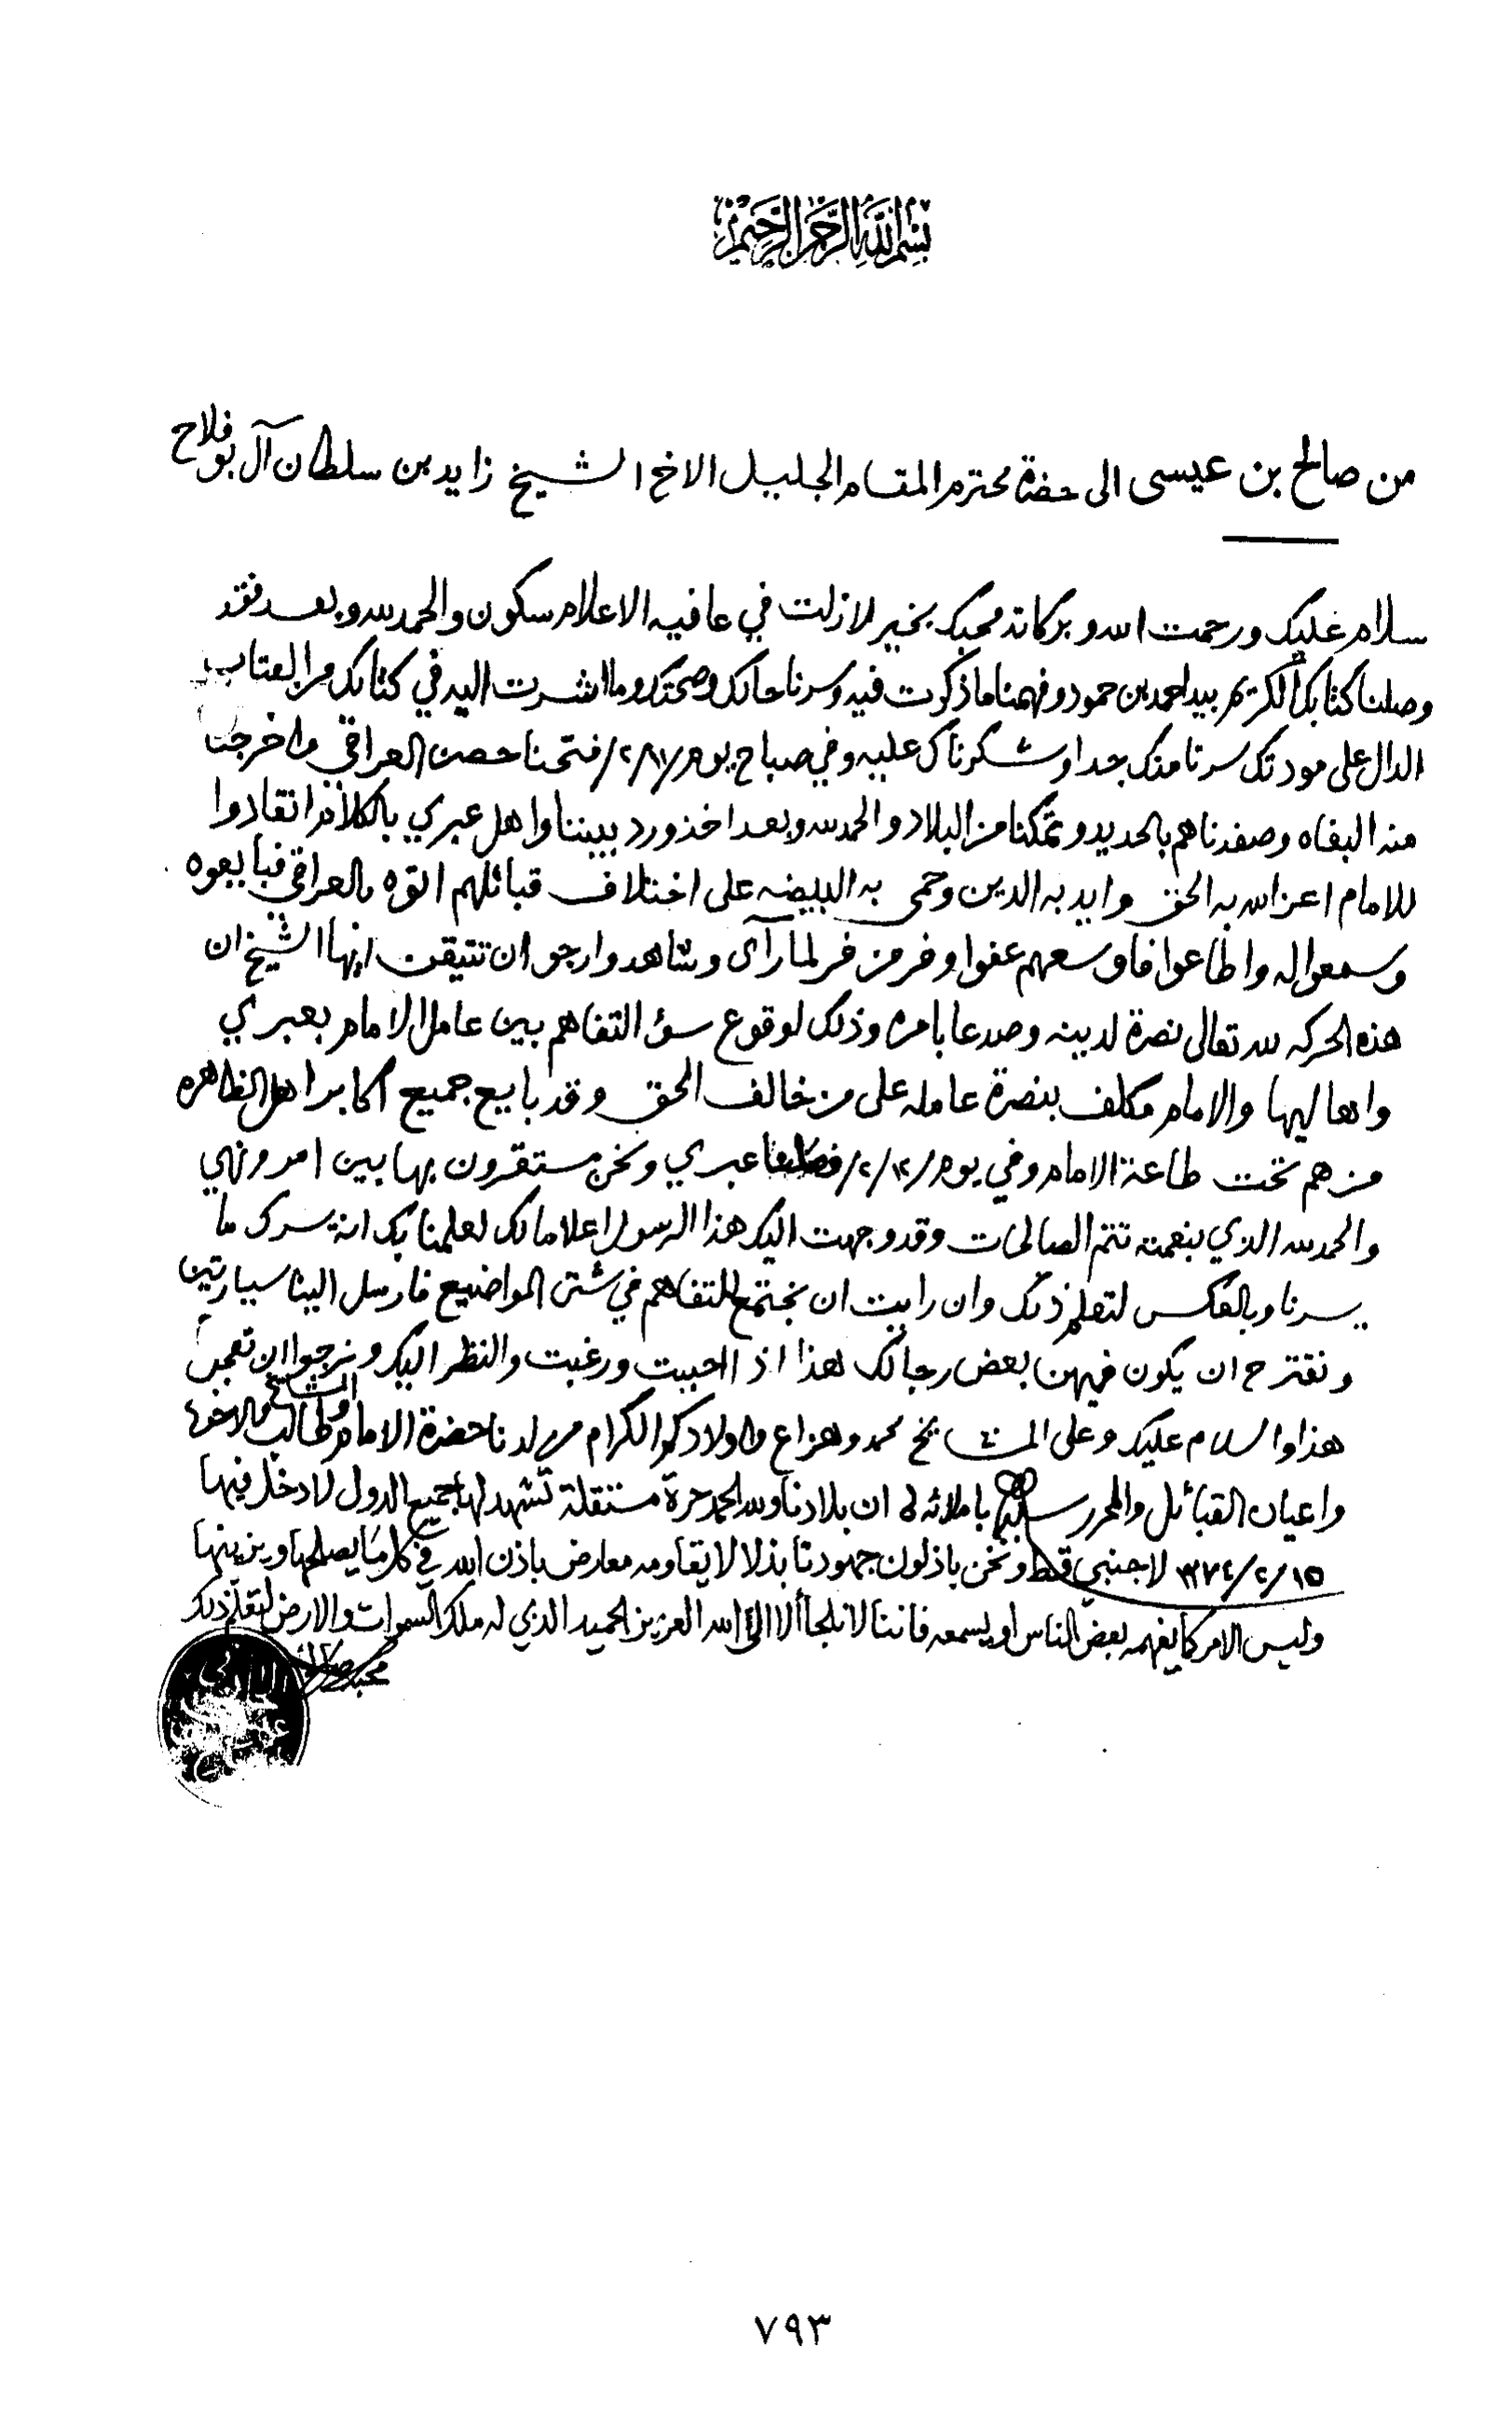 بسم الله الرحمن الرحيم
من صالح بن عيسى الى حضرة محترم المقام الجليل الاخ الشيخ زايد بن سلطان آل بوفلاح
سلام عليك ورحمت الله وبركاته محبك بخير لازلت في عافيه الاعلام سكون والحمد لله وبعد فقد
وصلنا كتابك الكريم بيد احمد بن حمود وفهمنا ما ذكرت فيه وسرنا حالك وصحتك وما اشرت اليه في كتابك من العتاب
الدال على مودتك سرنا منك جدا وشكرناك عليه وفي صباح يوم فتحنا حصن العراقي واخرجنا
منه البغاه وصفدناهم بالحديد وتمكنا من البلاد والحمد لله وبعد اخذ ورد بيننا واهل عبري بالكلام انقادوا
للامام اعز الله به الحق وايد به الدين وحمى به البيضه على اختلاف قبائلهم اتوه بالعراقي فبايعوه
وسمعوا له واطاعوا فاوسعهم عفوا وفر من فر لما رآى وشاهد وارجو ان تتيقن ايها الشيخ ان
هذه الحركه لله تعالى نصرة لدينه وصدعا بامره وذلك لوقوع سوء التفاهم بين عامل الامام بعبري
واهاليها والامام مكلف بنصرة عامله على من خالف الحق وقد بايع جميع اكابر اهل الظاهره
من هم تحت طاعة الامام وفي يوم عبري ونحن مستقرون بها بين امر ونهي
والحمد لله الذي بنعمته تتم الصالحات وقد وجهت اليك هذا الرسول اعلاما لك لعلمنا بك انه يسرك ما
يسرنا وبالعكس لتعلم ذلك وان رايت ان نجتمع للتفاهم في شتى المواضيع فارسل الينا سيارتين
ونقترح ان يكون فيهن بعض رجالك هذا اذ احببت ورغبت والنظر اليك ونرجوا ان تعجل
هذا والسلام عليك وعلى المشايخ محمد وهزاع واولادكم الكرام من لدنا حضرة الامام والمشايخ طالب والاخوة
واعيان القبائل والمحرر باملائه لي ان بلادنا ولله الحمد حرة مستقلة تشهد لها جميع الدول لا دخل فيها
١٣٧٤/٢/١٥ لاجنبي قط ونحن باذلون جهودنا بذلا لا يقاومه معارض باذن الله في كل ما يصلحها ويزينها
وليس الامر كما يفهمه بعض الناس او يسمعه فاننا لا نلجأ الا الى الله العزيز الحميد الذي له ملك السموات والارض لتعلم ذلك
٧٩٣